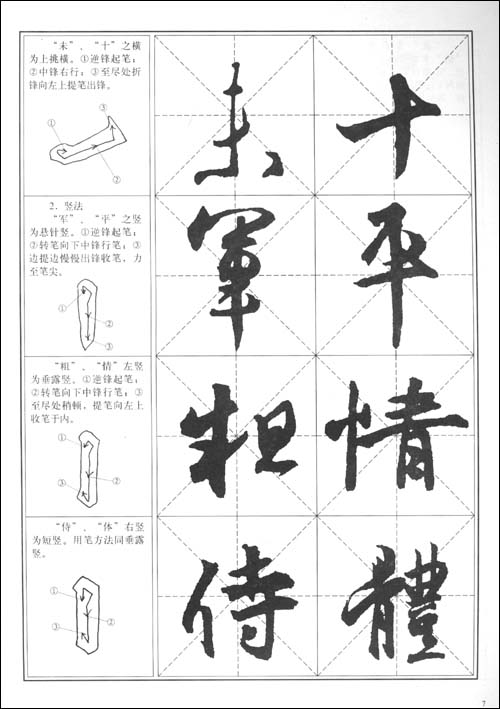 “未”、“十”之横
为上挑横。①逆锋起笔；
②中锋右行；③至尽处折
锋向左上提笔出锋。
③
①
②
未 十
2．竖法
“军”、“平”之竖
为悬针竖。①逆锋起笔；
②转笔向下中锋行笔；③
边提边慢慢出锋收笔，力
至笔尖。
①
②
③
軍 平
“粗”、“情”左竖
为垂露竖。①逆锋起笔；
②转笔向下中锋行笔；③
至尽处稍顿，提笔向左上
收笔于内。
①
③ ②
粗 情
“侍”、“体”右竖
为短竖。用笔方法同垂露
竖。
①
②
③
侍 體
7